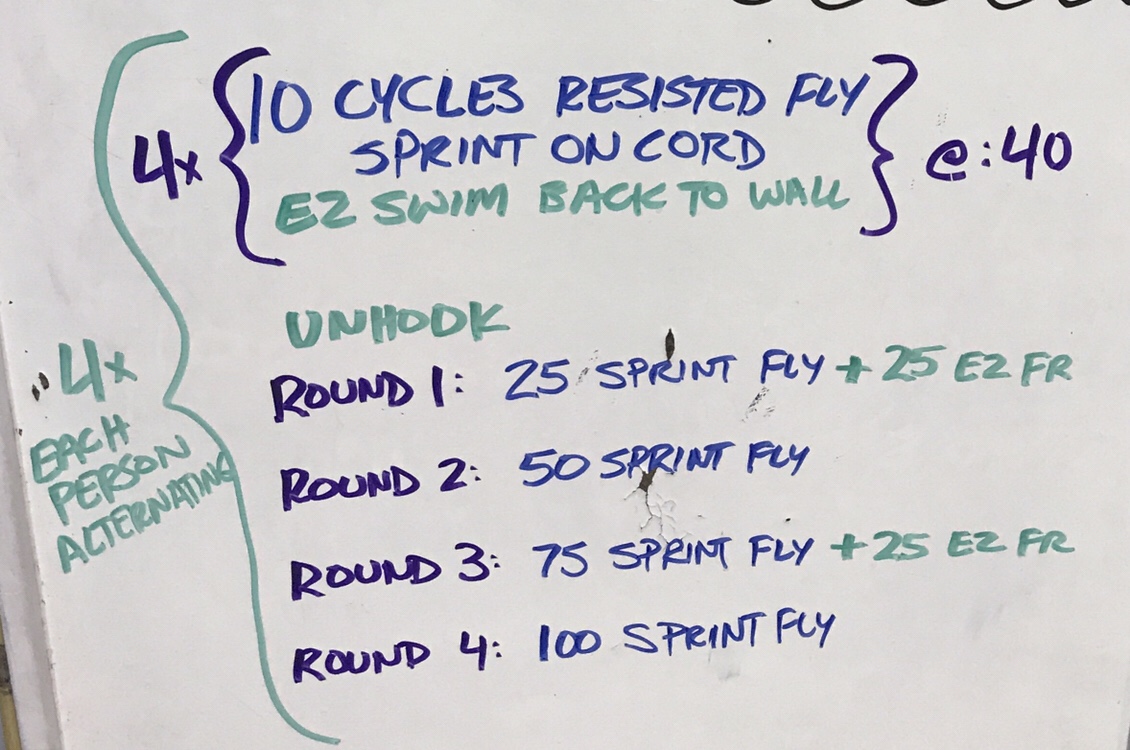 4x { 10 CYCLES RESISTED FLY
SPRINT ON CORD
EZ SWIM BACK TO WALL } @:40
UNHOOK
ROUND 1: 25 SPRINT FLY + 25 EZ FR
ROUND 2: 50 SPRINT FLY
ROUND 3: 75 SPRINT FLY + 25 EZ FR
ROUND 4: 100 SPRINT FLY
4x
EACH
PERSON
ALTERNATING